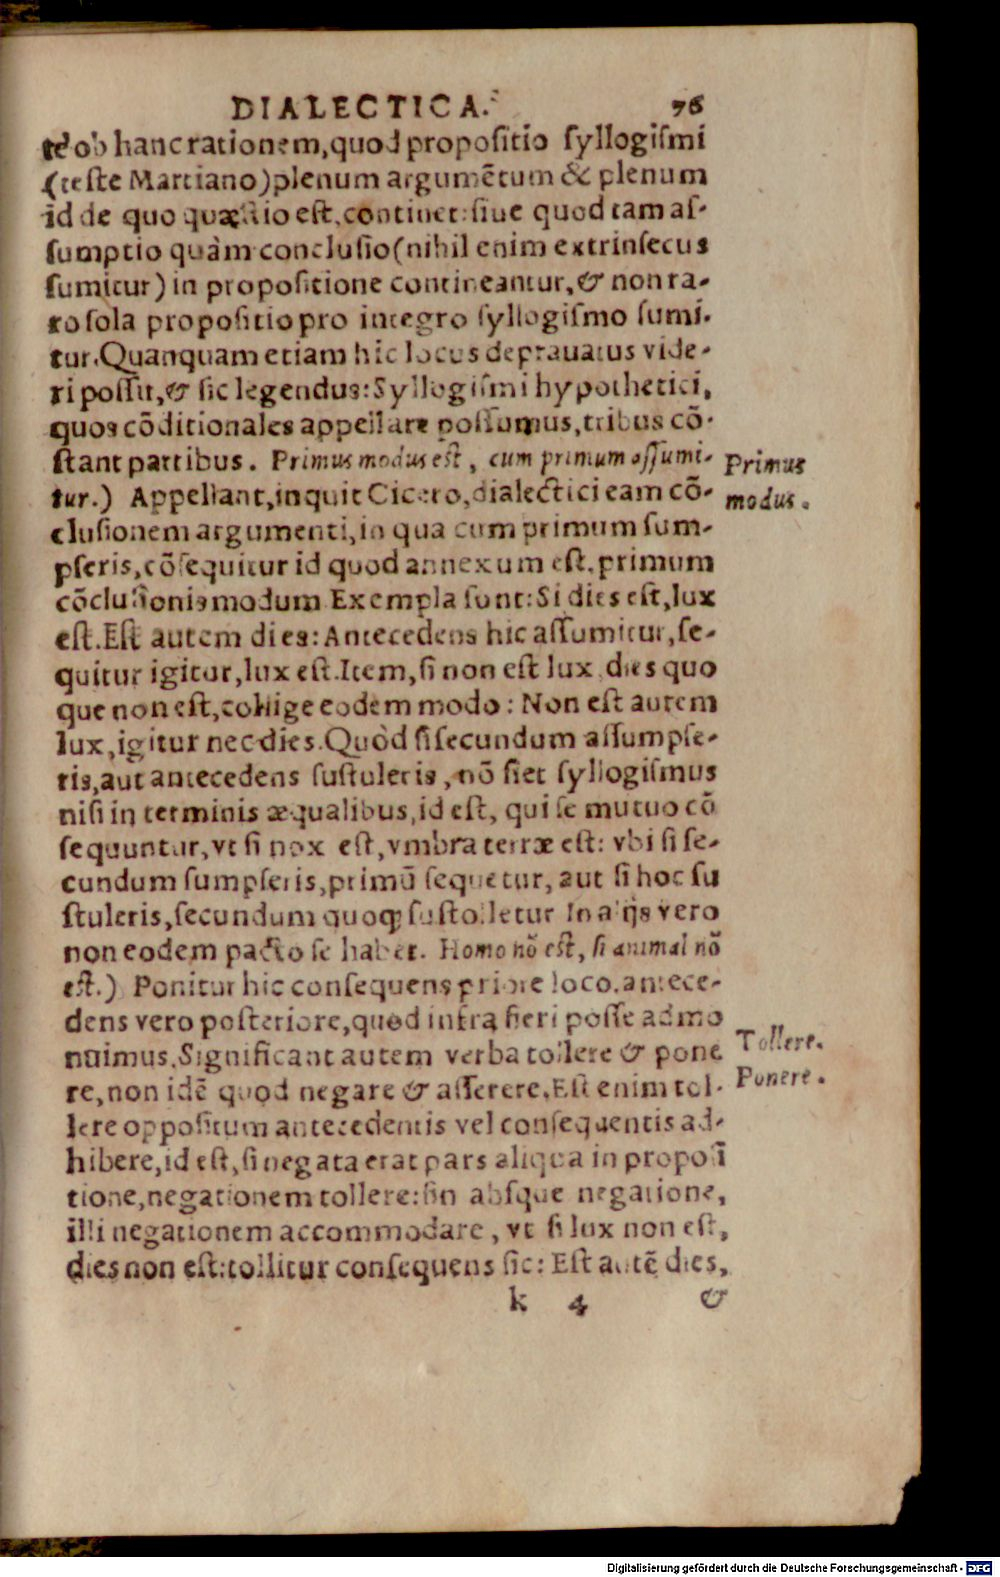 DIALECTICA. 76
te ob hanc rationem, quod propositio syllogismi
(teste Martiano) plenum argumẽtum & plenum
id de quo quæstio est, continet: siue quod tam as-
sumptio quàm conclusio (nihil enim extrinsecus
sumitur) in propositione contineantur, & non ra-
ro sola propositio pro integro syllogismo sumi-
tur. Quanquam etiam hic locus deprauatus vide-
ri possit, & sic legendus: Syllogismi hypothetici,
quos cõditionales appellare possumus, tribus cõ-
stant partibus. Primus modus est, cum primum assumi-
tur.) Appellant, inquit Cicero, dialectici eam cõ-
clusionem argumenti, in qua cum primum sum-
pseris, cõsequitur id quod annexum est, primum
cõclusionis modum Exempla sunt: Si dies est, lux
est. Est autem dies: Antecedens hic assumitur, se-
quitur igitur, lux est. Item, si non est lux, dies quo
que non est, collige eodem modo: Non est autem
lux, igitur nec dies. Quòd si secundum assumpse-
ris, aut antecedens sustuleris, nõ fiet syllogismus
nisi in terminis æqualibus, id est, qui se mutuo cõ
sequuntur, vt si nox est, vmbra terræ est: vbi si se-
cundum sumpseris, primũ sequetur, aut si hoc su
stuleris, secundum quoqꝫ sustolletur In alijs vero
non eodem pacto se habet. Homo nõ est, si animal nõ
est.) Ponitur hic consequens priore loco, antece-
dens vero posteriore, quod infra fieri posse admo
nuimus. Significant autem verba tollere & pone
re, non idẽ quod negare & asserere. Est enim tol-
lere oppositum antecedentis vel consequentis ad-
hibere, id est, si negata erat pars aliqua in proposi
tione, negationem tollere: sin absque negatione,
illi negationem accommodare, vt si lux non est,
dies non est: tollitur consequens sic: Est autẽ dies,
k 4 &
Primus
modus.
Tollere.
Ponere.
Digitalisierung gefördert durch die Deutsche Forschungsgemeinschaft - DFG